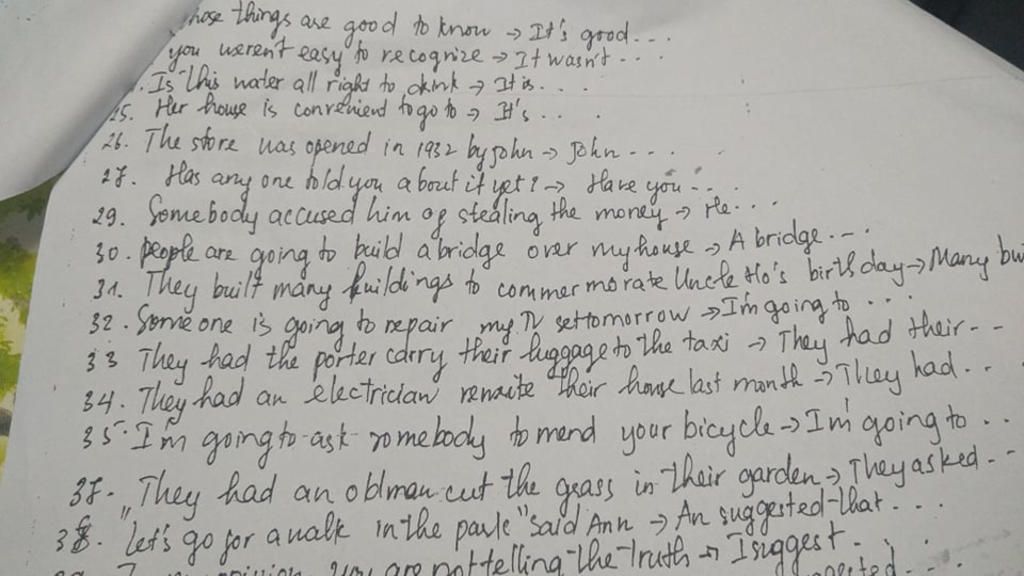 things are good to know → It's good...
you weren't easy to recognize → It wasn't ...
. Is this water all right to drink → It is...
25. Her house is convenient to go to → It's ...
26. The store was opened in 1932 by John → John ...
27. Has any one told you about it yet? → Have you ...
29. Somebody accused him of stealing the money → He...
30. people are going to build a bridge over my house → A bridge...
31. They built many buildings to commermorate Uncle Ho's birthday → Many
32. Someone is going to repair my TV set tomorrow → I'm going to ...
33 They had the porter carry their luggage to the taxi → They had their --
34. They had an electrician rewrite their house last month → They had..
35. I'm going to ask somebody to mend your bicycle → I'm going to ..
37. They had an oldman cut the grass in their garden → They asked --
38. "Let's go for a walk in the park" said Ann → An suggested that...
you are not telling the truth → I suggest...